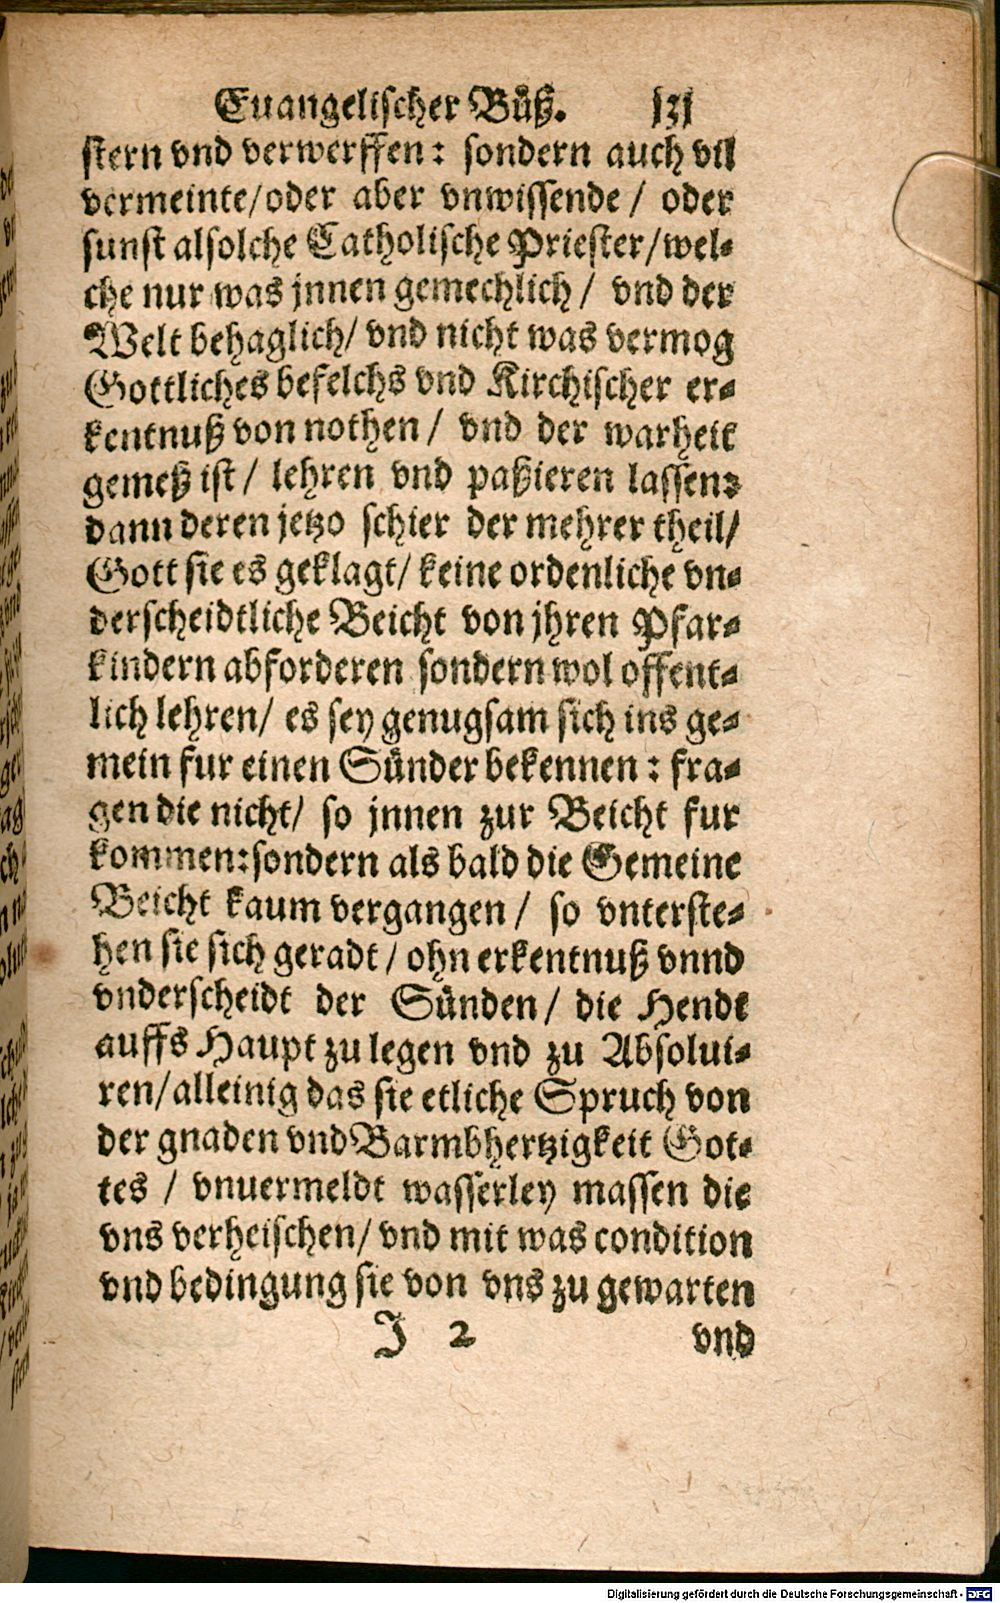 Euangelischer Büß. 131
stern vnd verwerffen: sondern auch vil
vermeinte/oder aber vnwissende / oder
sunst alsolche Catholische Priester/wel-
che nur was jnnen gemechlich / vnd der
Welt behaglich/ vnd nicht was vermog
Gottliches befelchs vnd Kirchischer er-
kentnuß von nothen / vnd der warheit
gemeß ist / lehren vnd paßieren lassen:
dann deren jetzo schier der mehrer theil/
Gott sie es geklagt/ keine ordenliche vn-
derscheidtliche Beicht von jhren Pfar-
kindern abforderen sondern wol offent-
lich lehren/ es sey genugsam sich ins ge-
mein fur einen Sünder bekennen : fra-
gen die nicht/ so jnnen zur Beicht fur
kommen:sondern als bald die Gemeine
Beicht kaum vergangen / so vnterste-
hen sie sich geradt / ohn erkentnuß vnnd
vnderscheidt der Sünden / die Hendt
auffs Haupt zu legen vnd zu Absolui-
ren/alleinig das sie etliche Spruch von
der gnaden vnd Barmbhertzigkeit Got-
tes / vnuermeldt wasserley massen die
vns verheischen/ vnd mit was condition
vnd bedingung sie von vns zu gewarten
J 2 vnd
Digitalisierung gefördert durch die Deutsche Forschungsgemeinschaft - DFG